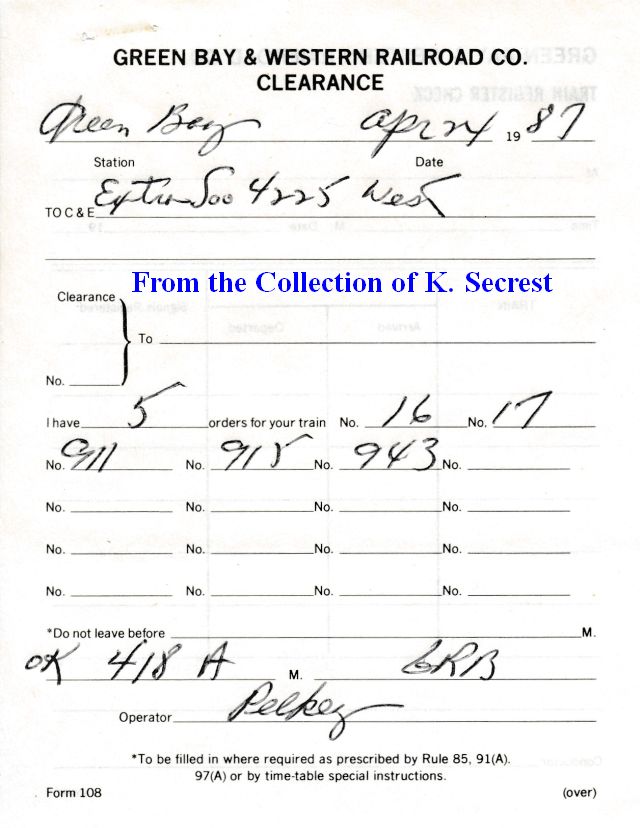 GREEN BAY & WESTERN RAILROAD CO.
CLEARANCE
Green Bay Apr 24 19 87
Station Date
TO C & E Extra Soo 4225 West
From the Collection of K. Secrest
Clearance
To
No.
I have 5 orders for your train No. 16 No. 17
No. 911 No. 915 No. 943 No.
No. No. No. No.
No. No. No. No.
No. No. No. No.
*Do not leave before M.
OK 418 A M. GRB
Operator Pelkey
*To be filled in where required as prescribed by Rule 85, 91(A).
97(A) or by time-table special instructions.
Form 108 (over)